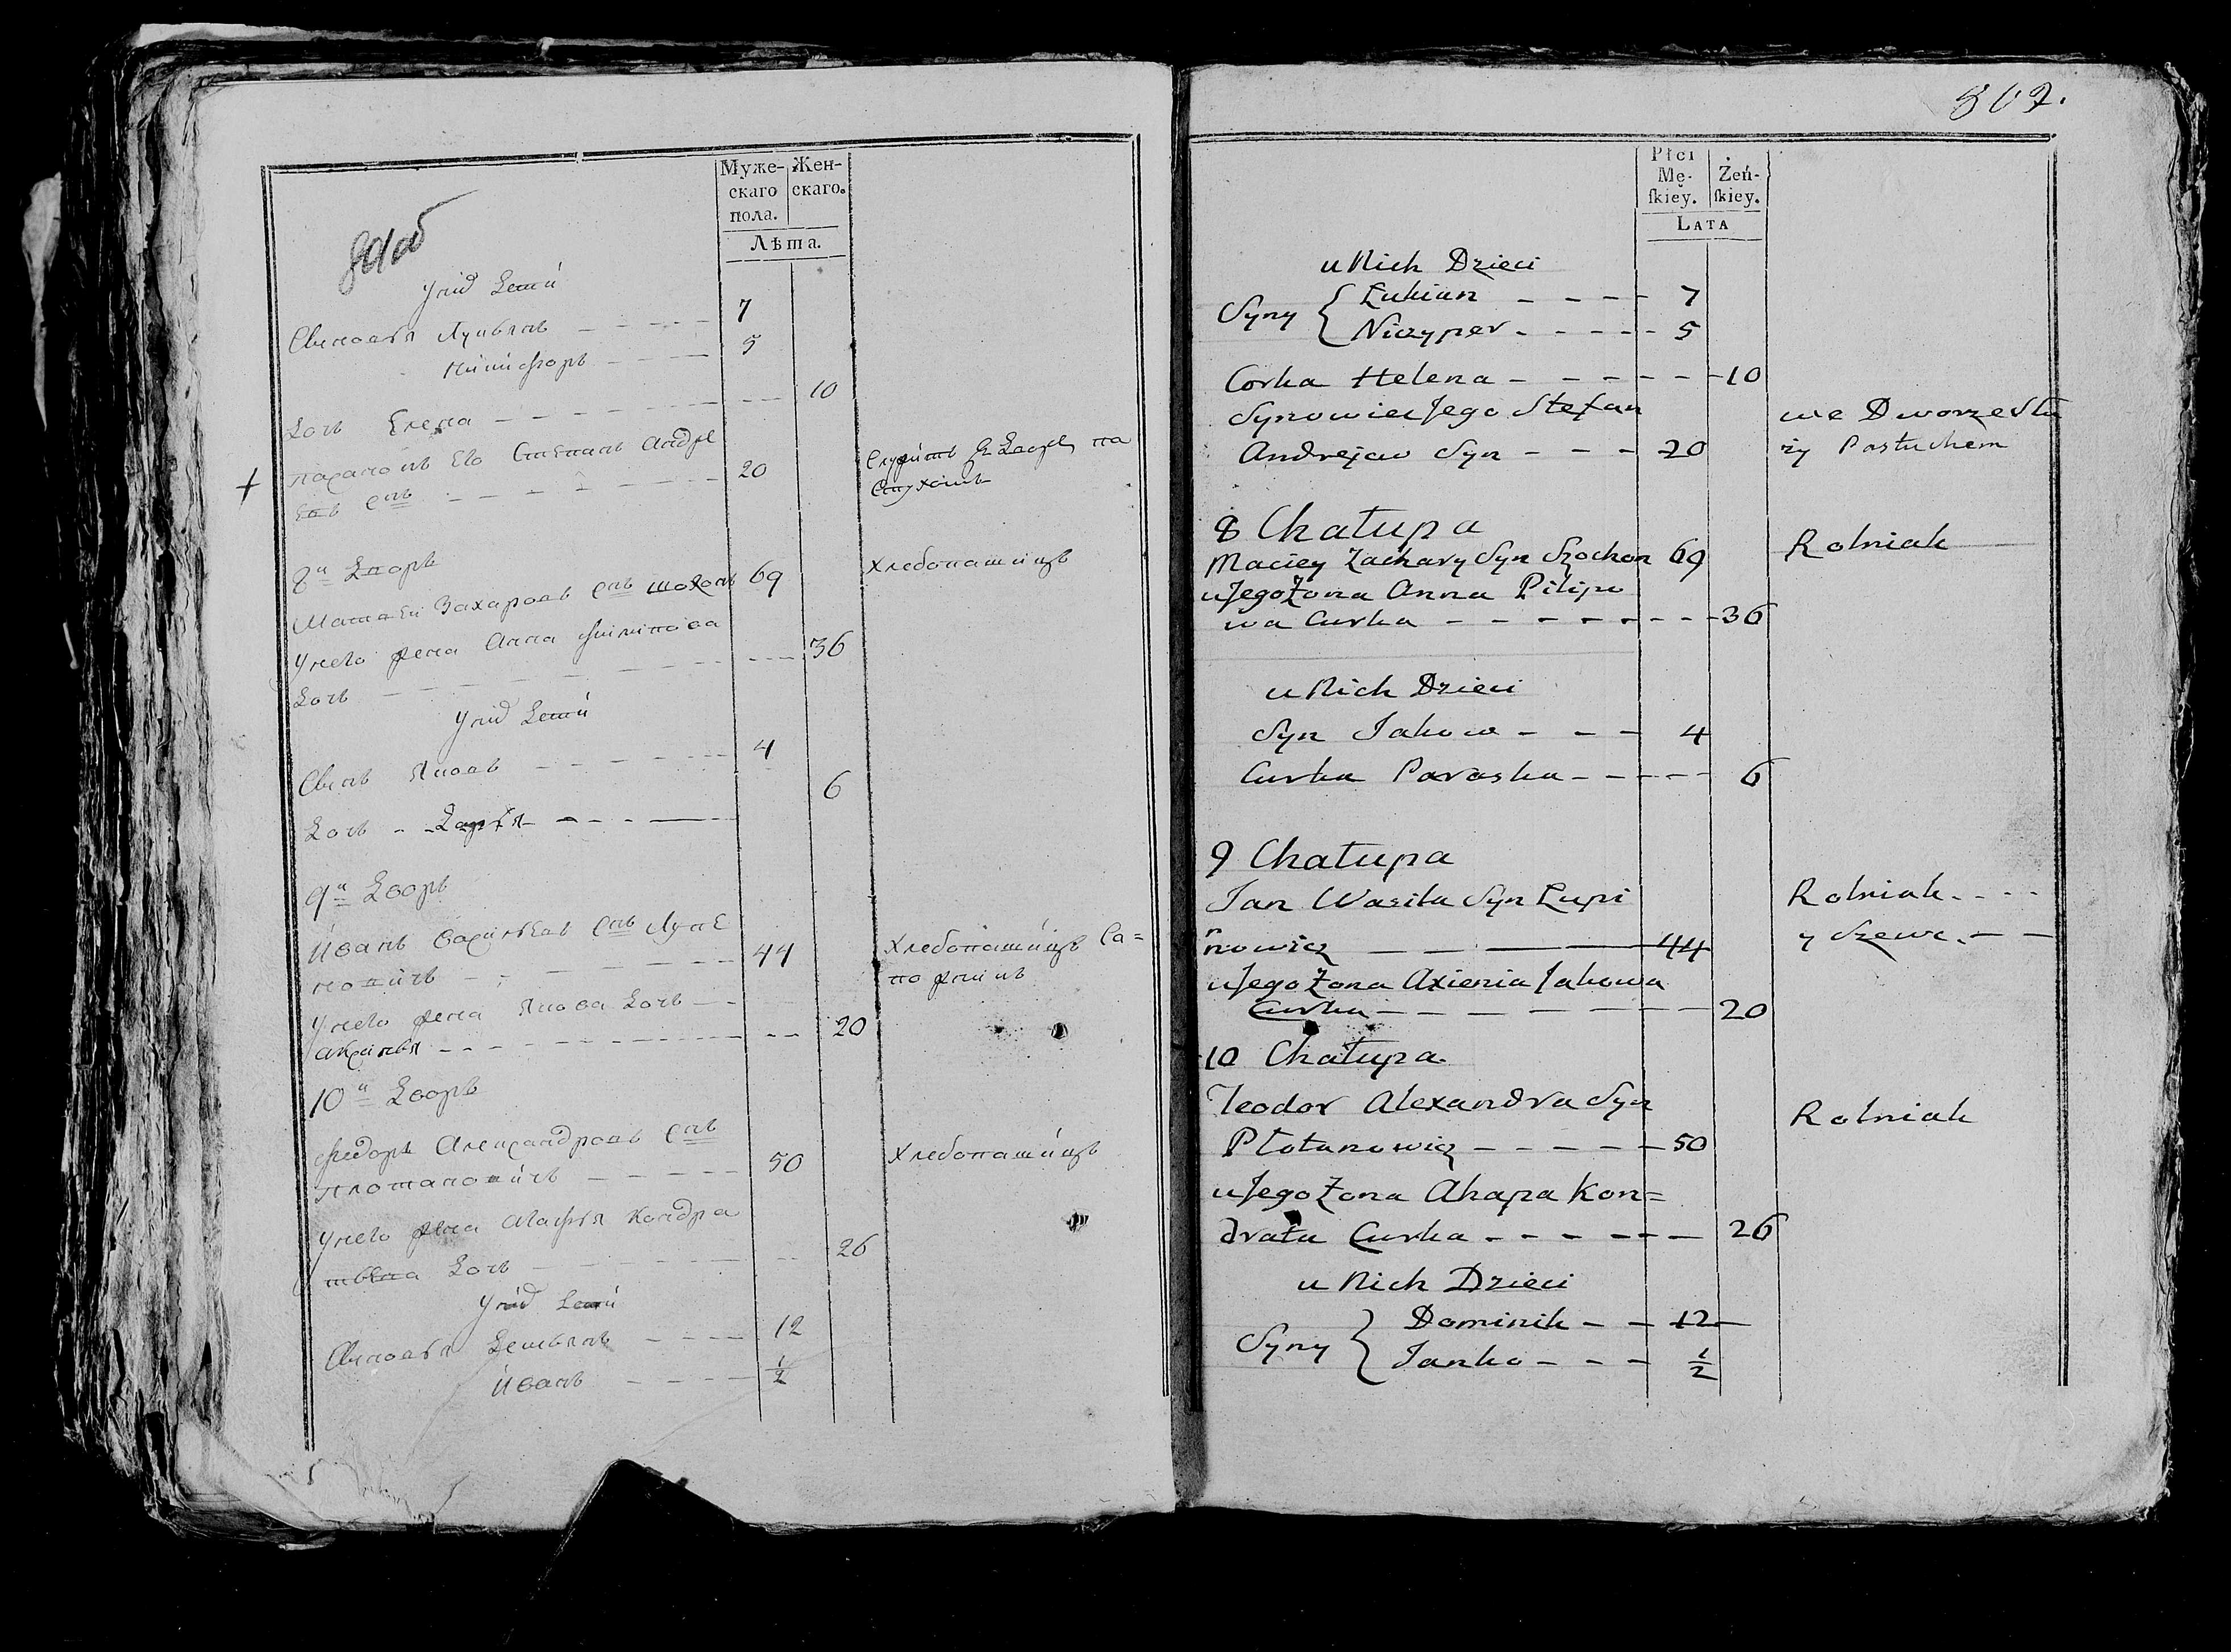 801об
Муже-
скаго
пола.
Жен-
скаго.
Лѣта.
У нихъ Дети
Сыновья Лукьянъ 7
Никифоръ 5
Дочь Елена 10
Его Степанъ Андре
евъ снъ 20
Служитъ въ Дворе па
стухомъ
8й Дворъ
Матвей Захаровъ снъ Шоханъ 69 Хлебопашицъ
У него жена Анна Филипова
Дочь 36
У нихъ Дети
Сынъ Яковъ 4
Дочь 6
9й Дворъ
Иванъ Васильевъ снъ Лупе
новичъ 44
Хлебопашицъ Са=
пожникъ
У него жена Якова Дочь
Аксинья 20
10й Дворъ
Федоръ Александровъ снъ
Плотановичъ 50 Хлебопашицъ
У него жена Агафья Кондра
тьева Дочь 26
У нихъ Дети
Сыновья Демьянъ 12
Иванъ 1/2
802.
Płci
Mę-
ſkiey.
Żeń-
ſkiey.
LATA
u Nich Dzieci
Syny { Łukian 7
Niczyper 5
Corka Helena 10
Synowiec Jego Stefan
Andrejew Syn 20
we Dworze Słu
ży Pastuchem
8 Chałupa
Maciey Zachary Syn Szochan 69 Rolniak
u Jego Żona Anna Pilipo
wa Curka 36
u Nich Dzieci
Syn Jakow 4
Curka Paraska 6
9 Chałupa
Jan Wasila Syn Łupi
nowicz 44
Rolniak
y Szewc.
u Jego Żona Axienia Jakowa
Curka 20
10 Chałupa
Teodor Alexandra Syn
Płotanowicz 50
Rolniak
u Jego Żona Ahapa Kon=
drata Curka 26
u Nich Dzieci
Syny { Dominik 12
Janko 1/2